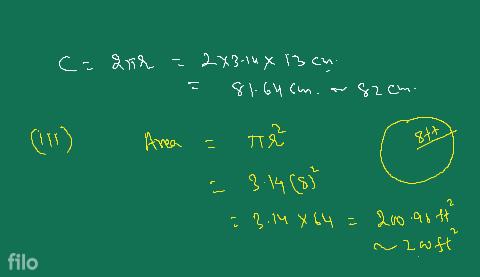 C = 2πr = 2×3.14 × 13 cm.
= 81.64 cm. ~ 82 cm.
(III) Area = πr²
8ft
= 3.14 (8)²
= 3.14 × 64 = 200.96 ft²
~ 200 ft²
filo